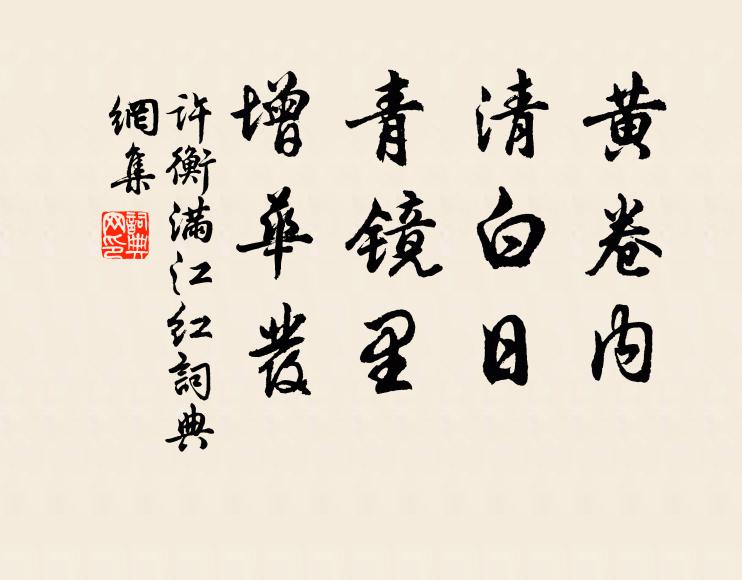 黄卷内
清白日
青镜里
增華發
许衡满江红詞典
網集
詞典网印